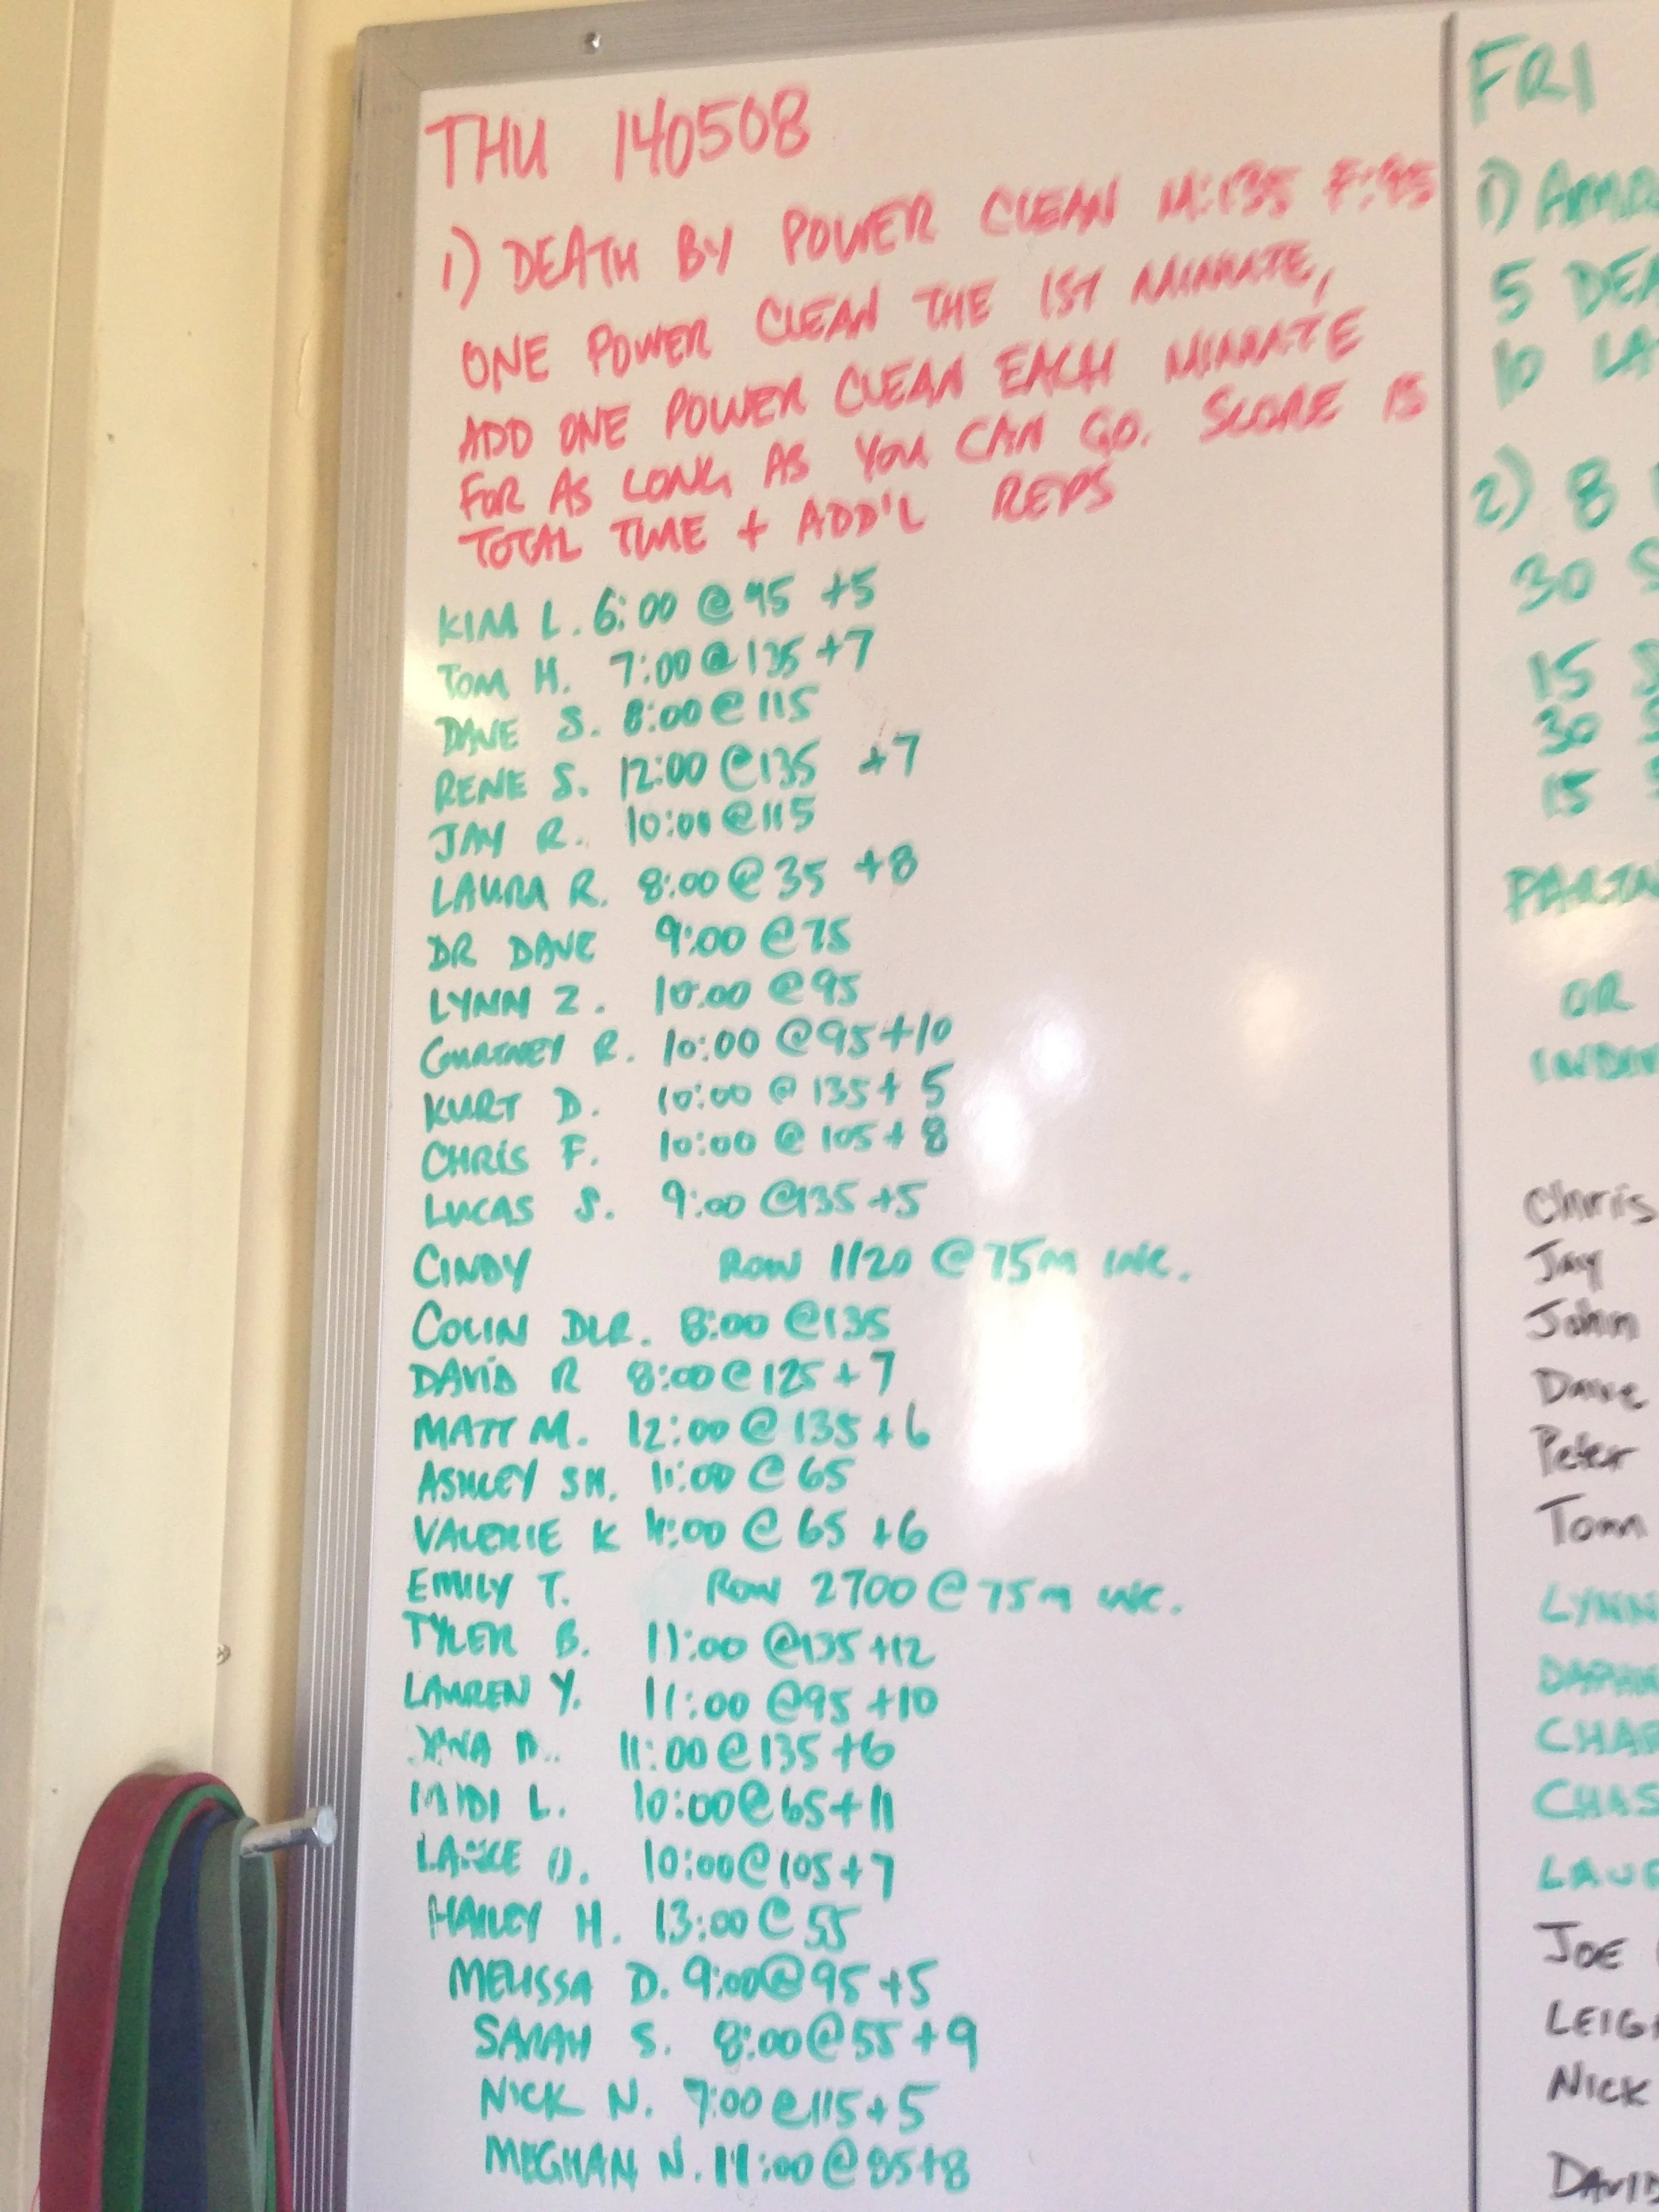 THU 140508
1) DEATH BY POWER CLEAN M:135 F:95
ONE POWER CLEAN THE 1ST MINUTE,
ADD ONE POWER CLEAN EACH MINUTE
FOR AS LONG AS YOU CAN GO. SCORE IS
TOTAL TIME + ADD'L REPS
KIM L. 6:00 @ 95 +5
TOM H. 7:00 @ 135 +7
DAVE S. 8:00 @ 115
RENE S. 12:00 @ 135 +7
JAY R. 10:00 @ 115
LAURA R. 8:00 @ 35 +8
DR DAVE 9:00 @ 75
LYNN Z. 10:00 @ 95
COURTNEY R. 10:00 @ 95 +10
KURT D. 10:00 @ 135 + 5
CHRIS F. 10:00 @ 105 + 8
LUCAS S. 9:00 @ 135 +5
CINDY ROW 1120 @ 75m INC.
COLIN DLR. 8:00 @ 135
DAVID R 8:00 @ 125 + 7
MATT M. 12:00 @ 135 + 6
ASHLEY SH. 11:00 @ 65
VALERIE K :00 @ 65 +6
EMILY T. ROW 2700 @ 75m INC.
TYLER B. 11:00 @ 135 +12
LAUREN Y. 11:00 @ 95 +10
11:00 @ 135 +6
MIDI L. 10:00 @ 65 + 11
LANCE O. 10:00 @ 105 + 7
HAILEY H. 13:00 @ 55
MELISSA D. 9:00 @ 95 +5
SARAH S. 8:00 @ 55 + 9
NICK N. 7:00 @ 115 + 5
MEGHAN N. 11:00 @ 85 +8
FRI
1)
5 DEA
10 LA
2) 8
30 S
15 S
30 S
15 S
PARTN
OR
INDIV
Chris
Jay
John
Dave
Peter
Tom
LYNN
DAPHN
CHAR
CHAS
LAUR
JOE
LEIGH
NICK
DAVID